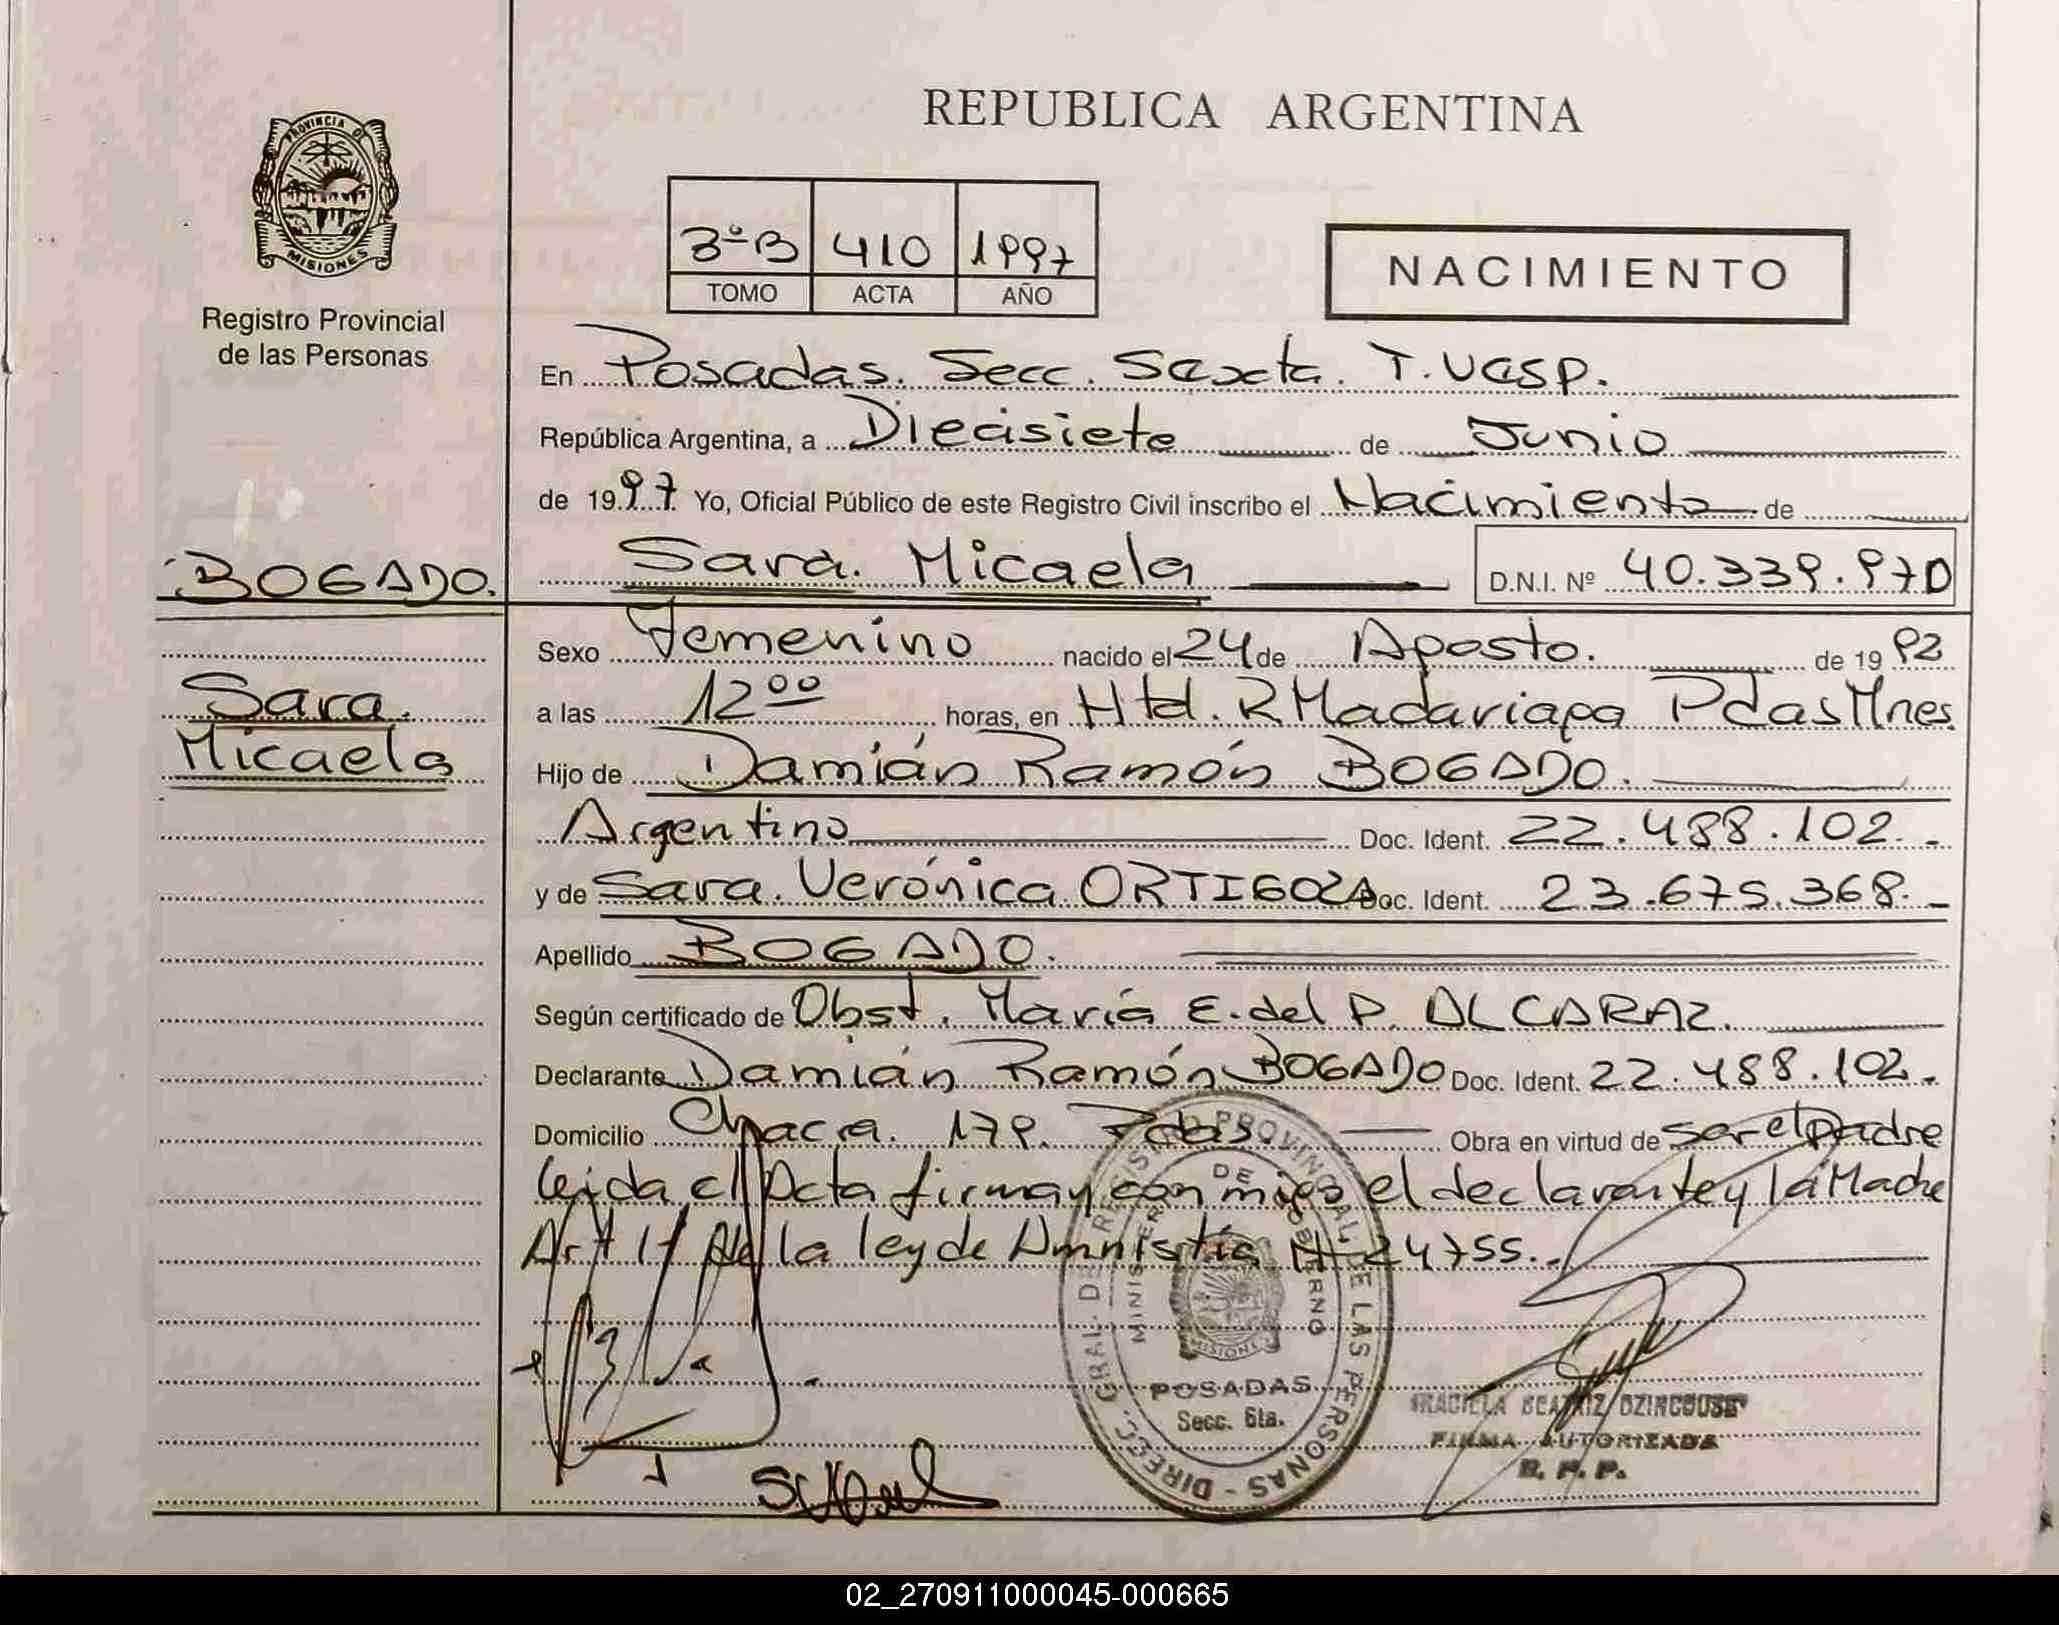 REPUBLICA ARGENTINA
PROVINCIA DE
MISIONES
Registro Provincial
de las Personas
3º B 410 1997
TOMO ACTA AÑO
NACIMIENTO
En Posadas. Secc. Sexta. T.
República Argentina, a Diecisiete de Junio
de 1997 Yo, Oficial Público de este Registro Civil inscribo el Nacimiento de
BOGADO. Sara. Micaela D.N.I. Nº 40.339.970
Sexo Femenino nacido el 24 de Agosto. de 1992
Sara. a las 12 00 horas, en Htal. R Madariaga Pdas Mnes.
Micaela Hijo de Damián Ramón BOGADO.
Argentino Doc. Ident. 22.488.102.-
y de Sara. Verónica ORTIGOZA Doc. Ident. 23.675.368.-
Apellido BOGADO.
Según certificado de Obst. María E. del P. ALCARAZ.
Declarante Damián Ramón BOGADO Doc. Ident. 22.488.102.-
Domicilio Chacra. 179. Pdas Obra en virtud de ser el padre
leida el Acta firman con migo el declarante y la Madre
Art 11 de la ley de Amnistía Nº 24755.-
DIRECC. GRAL. DE REGISTRO PROVINCIAL DE LAS PERSONAS
MINISTERIO DE GOBIERNO
MISIONES
POSADAS
Secc. 6ta.
GRACIELA BEATRIZ DZINCOUSE
FIRMA AUTORIZADA
R. P. P.
02_270911000045-000665